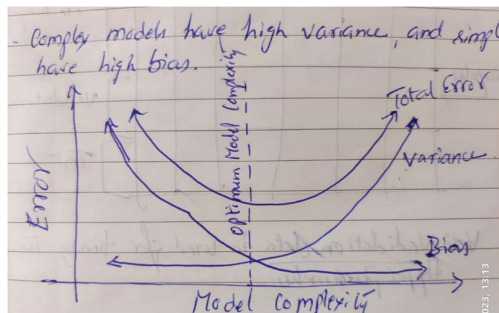 - Complex models have high variance, and simpl
have high bias.
Optimum Model Complexity
Total Error
Variance
Error
Bias
Model Complexity
023, 13:13